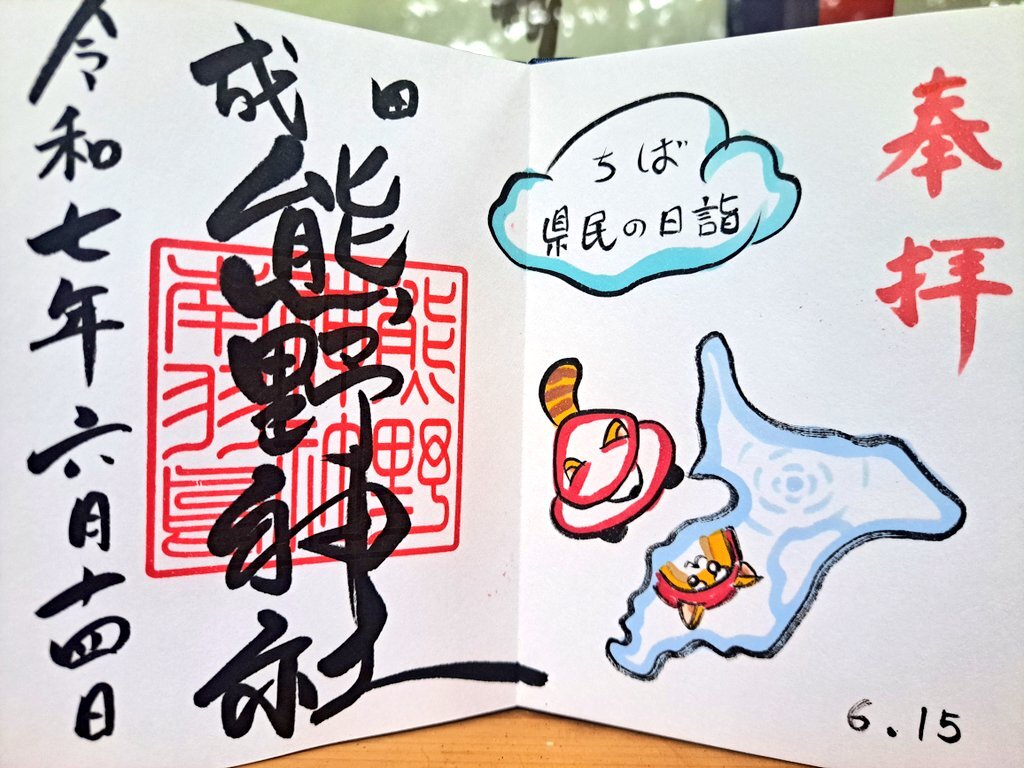 奉拝
ちば
県民の日詣
6.15
成田
熊野神社
熊野
神社
南羽鳥
令和七年六月十四日